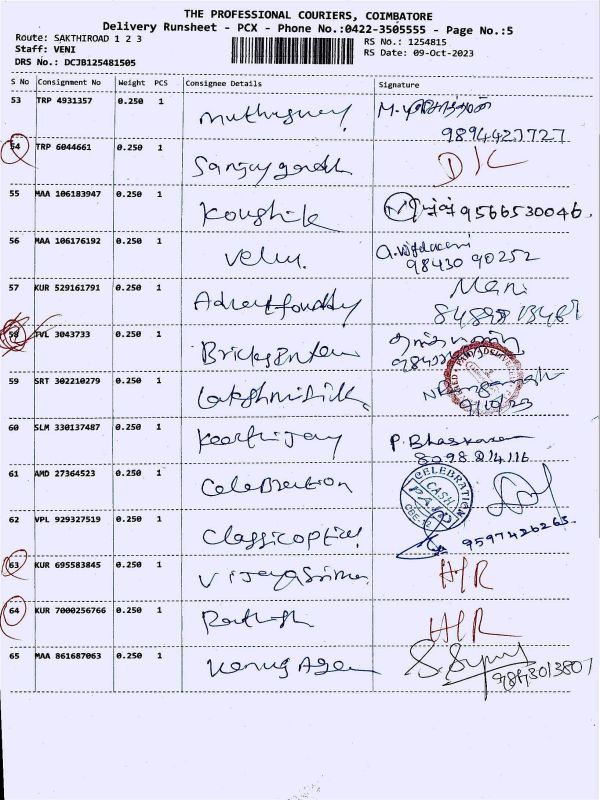 THE PROFESSIONAL COURIERS, COIMBATORE
Delivery Runsheet - PCX - Phone No.:0422-3505555 - Page No.:5
Route: SAKTHIROAD 1 2 3
RS No.: 1254815
Staff: VENI
RS Date: 09-Oct-2023
DRS No.: DCJB125481505
S No Consignment No Weight PCS Consignee Details Signature
53 TRP 4931357 0.250 1
9894427727
54 TRP 6044661 0.250 1 Sanjay gandh D/C
55 MAA 106183947 0.250 1 Koushik 9566530046
56 MAA 106176192 0.250 1 Velu
98430 90252
57 KUR 529161791 0.250 1 Mani
58 TVL 3043733 0.250 1
59 SRT 302210279 0.250 1
9/10/23
60 SLM 330137487 0.250 1 P. Bhaskaran
8098 214116
61 AMD 27364523 0.250 1 Celebration
CELEBRATION
CASH
PAID
CBE-12
62 VPL 929327519 0.250 1 Classic optical
9597426265
63 KUR 695583845 0.250 1 H/R
64 KUR 7000256766 0.250 1 H/R
65 MAA 861687063 0.250 1
9843013807